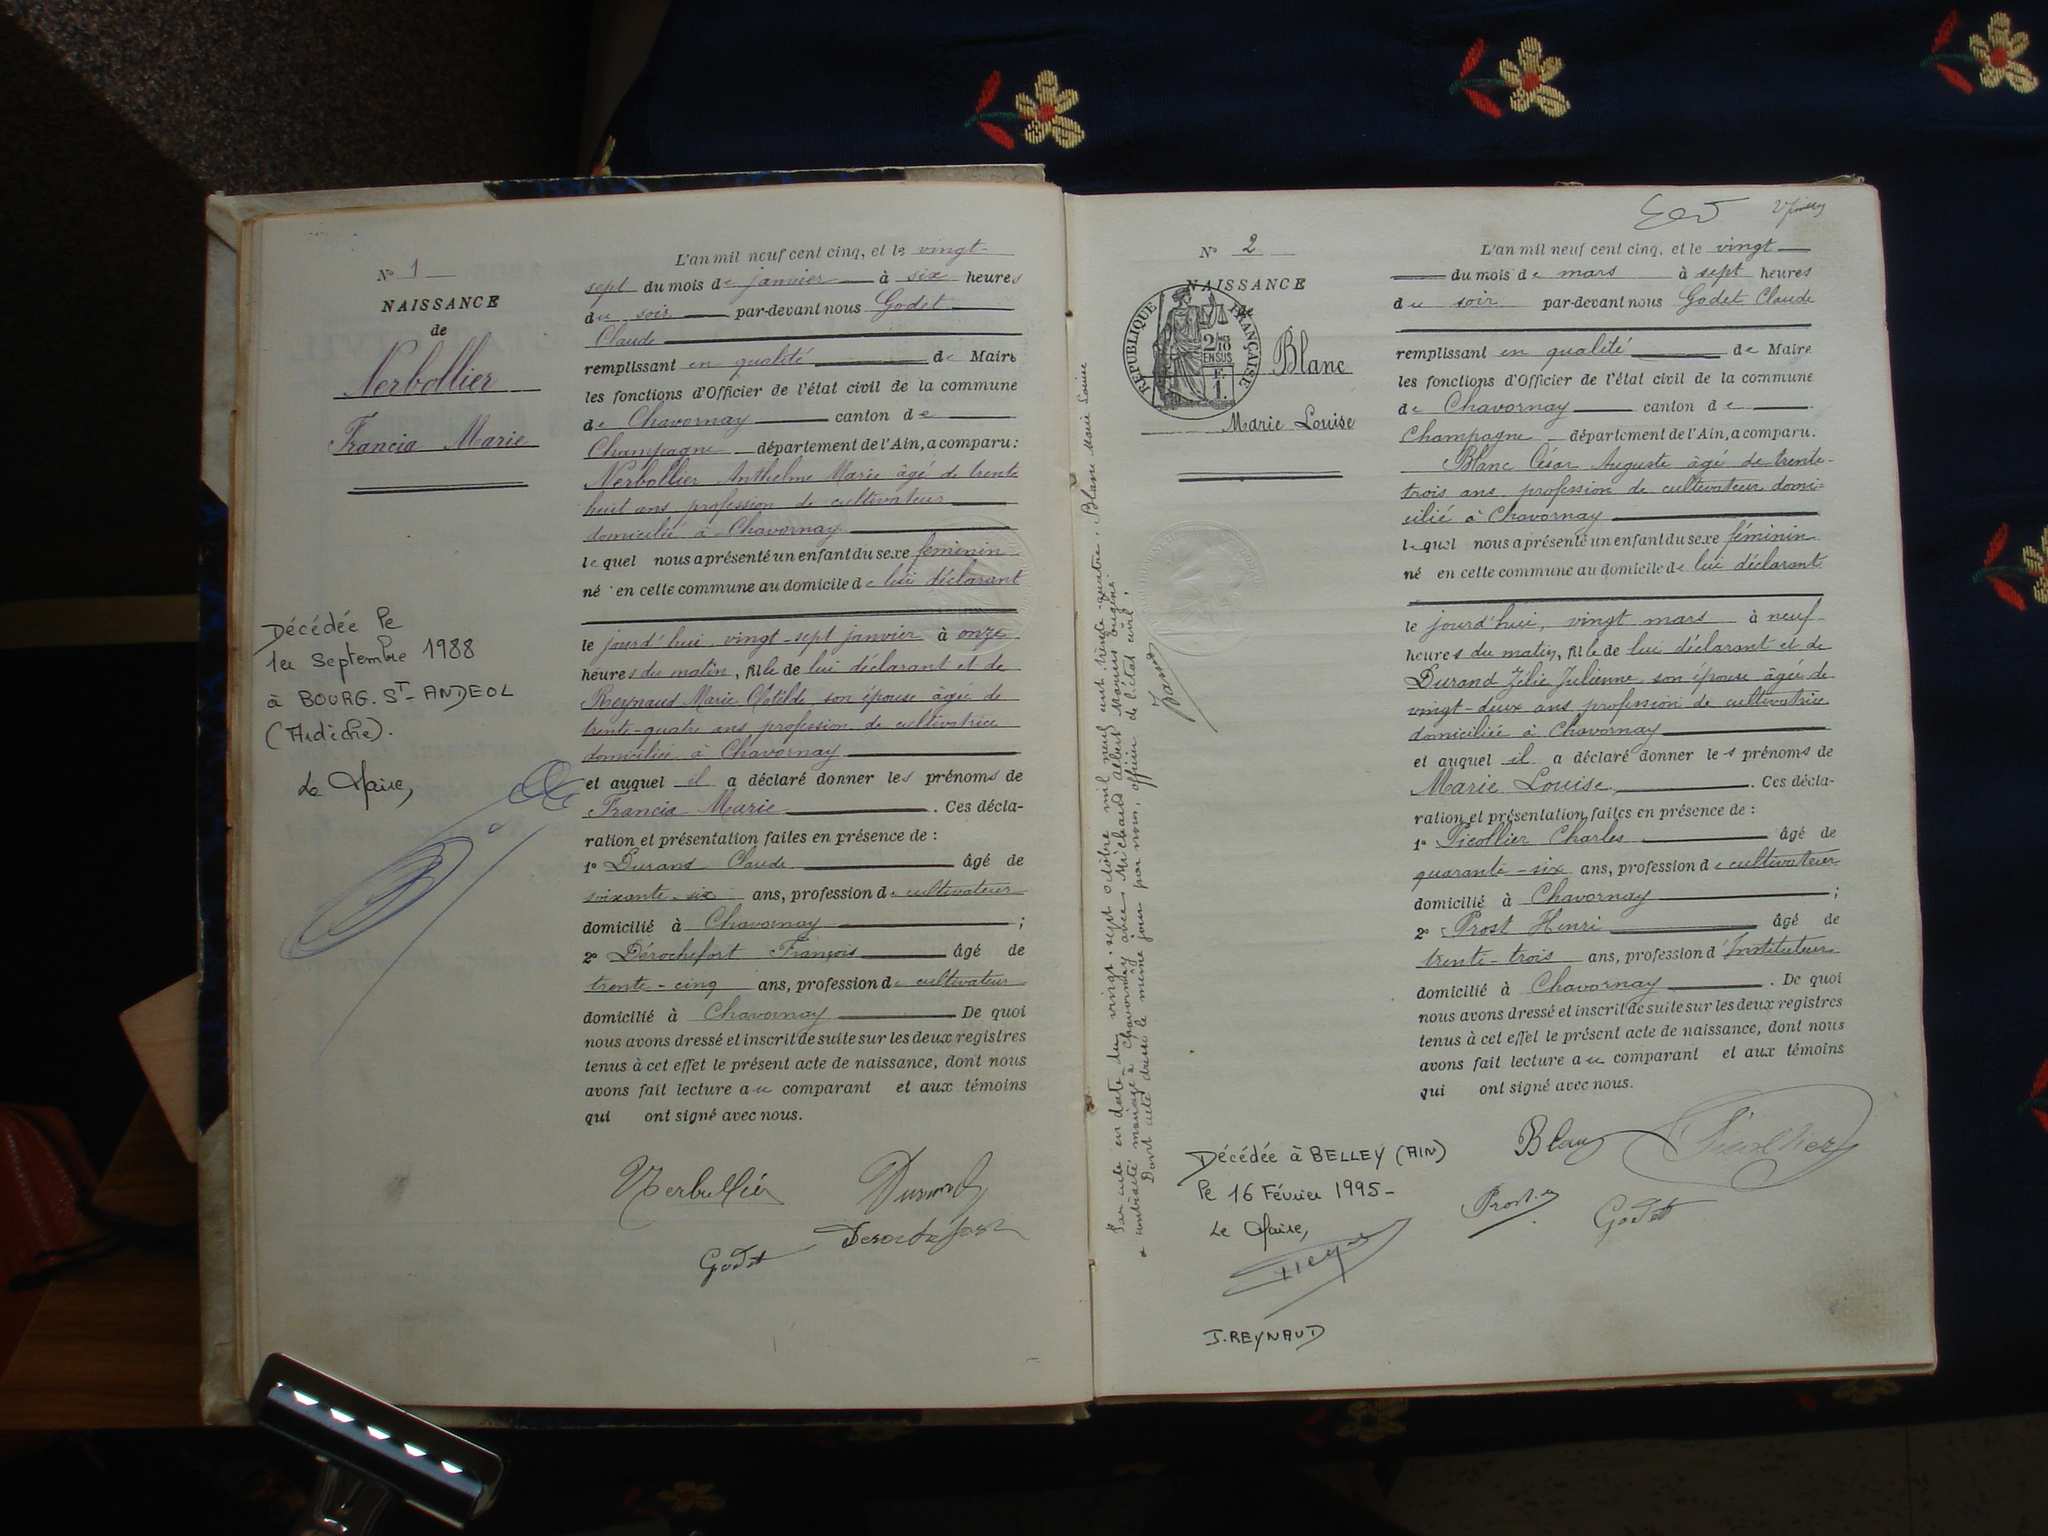 N° 1
NAISSANCE
de
Nerbollier
Francia Marie
Décédée le
1er Septembre 1988
à BOURG. ST-ANDEOL
(Ardèche).
Le Maire,
L'an mil neuf cent cinq, et le vingt-
sept du mois de janvier à six heures
du soir par-devant nous Godet
Claude
remplissant en qualité de Maire
les fonctions d'Officier de l'état civil de la commune
de Chavornay canton de
Champagne département de l'Ain, a comparu:
Nerbollier Anthelme Marie âgé de trente
huit ans profession de cultivateur
domicilié à Chavornay
lequel nous a présenté un enfant du sexe féminin
né en cette commune au domicile de lui déclarant
le jourd'hui vingt-sept janvier à onze
heures du matin, fille de lui déclarant et de
Reynaud Marie Clotilde son épouse âgée de
trente-quatre ans profession de cultivatrice
domiciliée à Chavornay
et auquel il a déclaré donner les prénoms de
Francia Marie. Ces décla-
ration et présentation faites en présence de:
1° Durand Claude âgé de
soixante-six ans, profession de cultivateur
domicilié à Chavornay;
2° Dérochefort François âgé de
trente-cinq ans, profession de cultivateur
domicilié à Chavornay De quoi
nous avons dressé et inscrit de suite sur les deux registres
tenus à cet effet le présent acte de naissance, dont nous
avons fait lecture au comparant et aux témoins
qui ont signé avec nous.
Nerbollier Durand
Godet Derochefort
N° 2
NAISSANCE
de
RÉPUBLIQUE FRANÇAISE
Blanc
Marie Louise
Par acte en date du vingt-sept octobre mil neuf cent trente-quatre, Blanc Marie Louise
a contracté mariage à Chavornay avec Michaud Albert Marius Eugène.
Dont acte dressé le même jour par nous, officier de l'état civil.
Décédée à BELLEY (AIN)
le 16 Février 1995-
Le Maire,
J. REYNAUD
L'an mil neuf cent cinq, et le vingt
du mois de mars à sept heures
du soir par-devant nous Godet Claude
remplissant en qualité de Maire
les fonctions d'Officier de l'état civil de la commune
de Chavornay canton de
Champagne département de l'Ain, a comparu.
Blanc César Auguste âgé de trente-
trois ans profession de cultivateur domi-
cilié à Chavornay
lequel nous a présenté un enfant du sexe féminin
né en cette commune au domicile de lui déclarant
le jourd'hui, vingt mars à neuf
heures du matin, fille de lui déclarant et de
Durand Zélie Julienne son épouse âgée de
vingt-deux ans profession de cultivatrice
domiciliée à Chavornay
et auquel il a déclaré donner les prénoms de
Marie Louise. Ces décla-
ration et présentation faites en présence de:
1° Picollier Charles âgé de
quarante-six ans, profession de cultivateur
domicilié à Chavornay;
2° Prost Henri âgé de
trente-trois ans, profession d'Instituteur
domicilié à Chavornay. De quoi
nous avons dressé et inscrit de suite sur les deux registres
tenus à cet effet le présent acte de naissance, dont nous
avons fait lecture au comparant et aux témoins
qui ont signé avec nous.
Blanc Picollier
Prost Godet